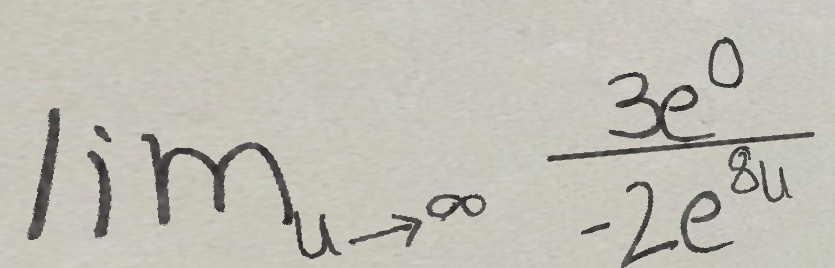 lim_{u→∞} \frac{3e^0}{-2e^{8u}}